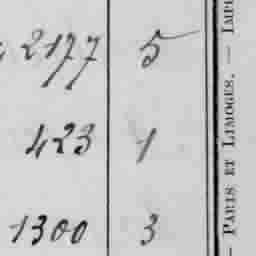 2177 5
423 1
1300 3
— PARIS ET LIMOGES. — IMP